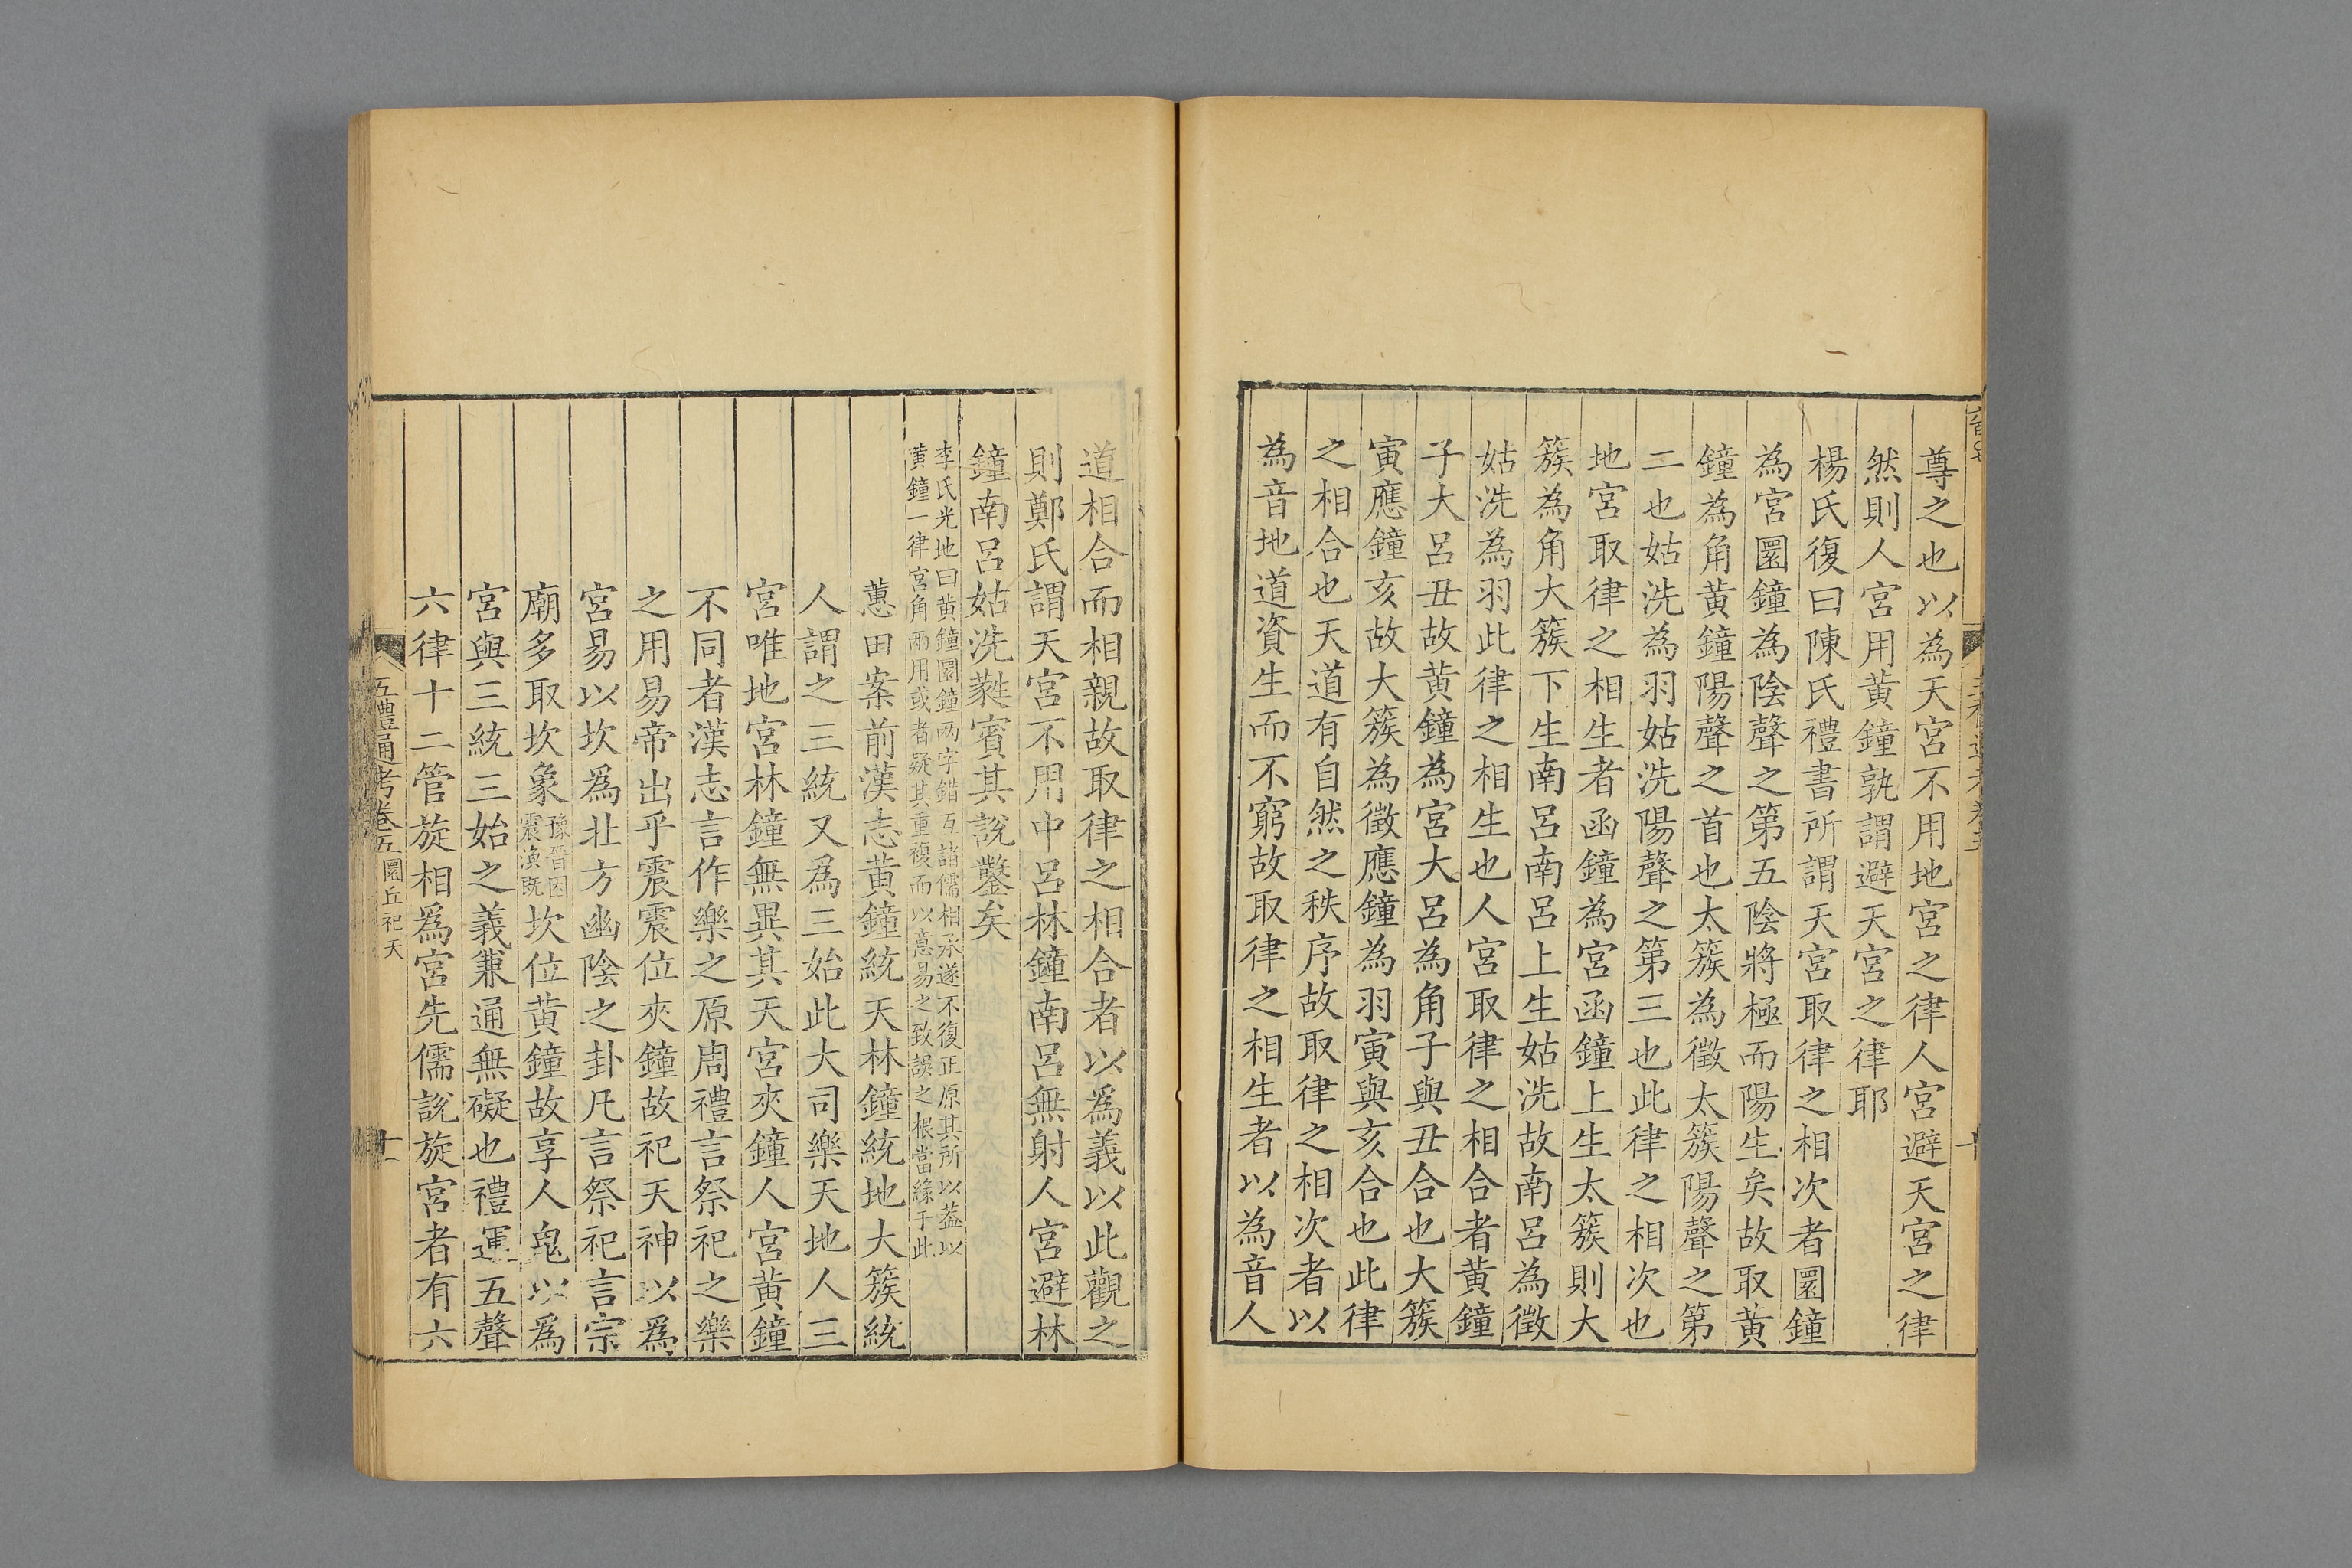 尊之也以為天宮不用地宮之律人宮避天宮之律
然則人宮用黃鐘孰謂避天宮之律耶
楊氏復曰陳氏禮書所謂天宮取律之相次者圜鐘
為宮圜鐘為陰聲之第五陰將極而陽生矣故取黃
鐘為角黃鐘陽聲之首也太簇為徵太簇陽聲之第
二也姑洗為羽姑洗陽聲之第三也此律之相次也
地宮取律之相生者函鐘為宮函鐘上生太簇則大
簇為角大簇下生南呂南呂上生姑洗故南呂為徵
姑洗為羽此律之相生也人宮取律之相合者黃鐘
子大呂丑故黃鐘為宮大呂為角子與丑合也大簇
寅應鐘亥故大簇為徵應鐘為羽寅與亥合也此律
之相合也天道有自然之秩序故取律之相次者以
為音地道資生而不窮故取律之相生者以為音人
道相合而相親故取律之相合者以爲義以此觀之
則鄭氏謂天宮不用中呂林鐘南呂無射人宮避林
鐘南呂姑洗蕤賓其說鑿矣
李氏光地曰黃鐘圜鐘兩字錯互諸儒相承遂不復正原其所以葢以
黃鐘一律宮角兩用或者疑其重複而以意易之致誤之根當緣于此
蕙田案前漢志黃鐘統天林鐘統地大簇統
人謂之三統又爲三始此大司樂天地人三
宮唯地宮林鐘無異其天宮夾鐘人宮黃鐘
不同者漢志言作樂之原周禮言祭祀之樂
之用易帝出乎震震位夾鐘故祀天神以爲
宮易以坎爲北方幽陰之卦凡言祭祀言宗
廟多取坎象豫晉困震渙既坎位黃鐘故享人鬼以爲
宮與三統三始之義兼通無礙也禮運五聲
六律十二管旋相爲宮先儒說旋宮者有六
五禮通考卷五 圜丘祀天 十一